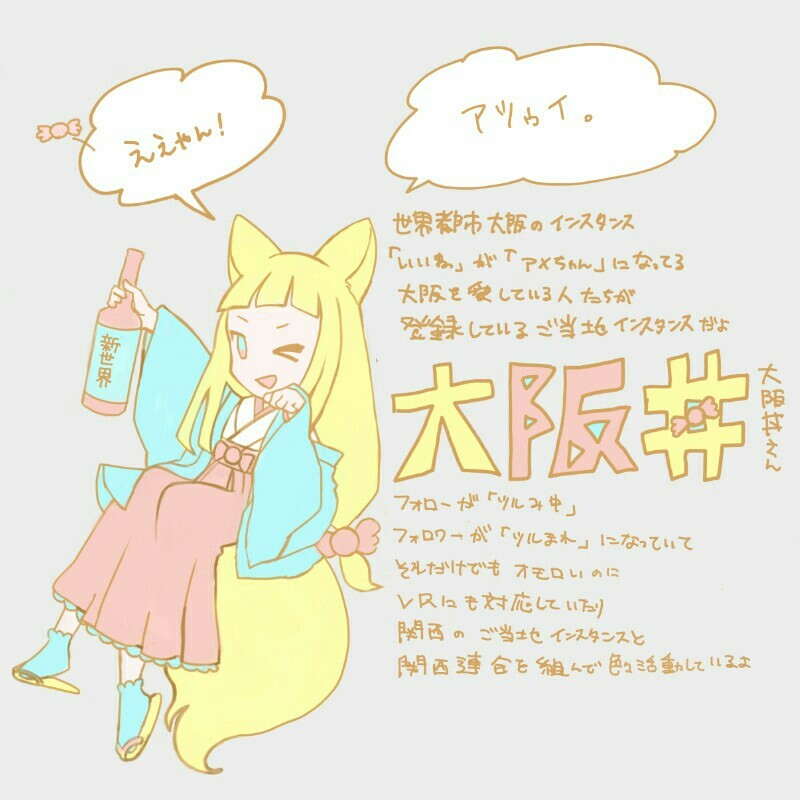 ええやん!
アツゥイ。
新世界
世界都市大阪のインスタンス
「いいね」が「アメちゃん」になってる
大阪を愛している人たちが
登録しているご当地インスタンスだよ
大阪丼
大阪丼さん
フォローが「ツルみ中」
フォロワーが「ツルまれ」になっていて
それだけでもオモロいのに
VRにも対応していたり
関西のご当地インスタンスと
関西連合を組んで色々活動しているよ